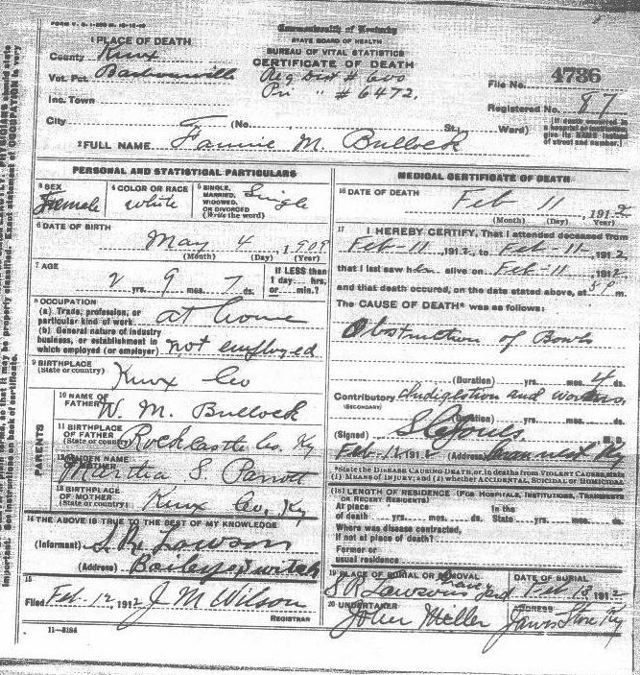 FORM V. S. 1
Commonwealth of Kentucky
STATE BOARD OF HEALTH
BUREAU OF VITAL STATISTICS
CERTIFICATE OF DEATH
1 PLACE OF DEATH
County Knox
Vot. Pct. Barbourville
Inc. Town
City (No. St.; Ward)
Reg Dist # 600
Pri " # 6472.
File No. 4736
Registered No. 87
[If death occurred in a hospital or institution give its NAME instead of street and number.]
2 FULL NAME Fannie M. Bullock
PERSONAL AND STATISTICAL PARTICULARS
3 SEX Female
4 COLOR OR RACE White
5 SINGLE, MARRIED, WIDOWED, OR DIVORCED (Write the word) Single
6 DATE OF BIRTH May 4, 1909
(Month) (Day) (Year)
7 AGE 2 yrs. 9 mos. 7 ds.
If LESS than 1 day....hrs. or....min.?
8 OCCUPATION
(a) Trade, profession, or particular kind of work at home
(b) General nature of industry business, or establishment in which employed (or employer) not employed
9 BIRTHPLACE (State or country) Knox Co
PARENTS
10 NAME OF FATHER W. M. Bullock
11 BIRTHPLACE OF FATHER (State or country) Rockcastle Co. Ky
12 MAIDEN NAME OF MOTHER Martha S. Parrott
13 BIRTHPLACE OF MOTHER (State or country) Knox Co, Ky
14 THE ABOVE IS TRUE TO THE BEST OF MY KNOWLEDGE
(Informant) S. R. Lawson
(Address) Baileys Switch
15
Filed Feb-12, 1912 J M Wilson
REGISTRAR
11-5184
MEDICAL CERTIFICATE OF DEATH
16 DATE OF DEATH Feb 11 1912
(Month) (Day) (Year)
17 I HEREBY CERTIFY, That I attended deceased from
Feb-11, 1912, to Feb-11-, 1912
that I last saw alive on Feb-11, 1912
and that death occured, on the date stated above, at 5 P m.
The CAUSE OF DEATH* was as follows:
Obstruction of Bowls
(Duration) yrs. mos. 4 ds.
Contributory Indigestion and worms
(SECONDARY)
(Duration) yrs. mos. ds.
(Signed) M. D.
Feb. 1912 (Address) Ky
*State the DISEASE CAUSING DEATH, or in deaths from VIOLENT CAUSES state
(1) MEANS OF INJURY; and (2) whether ACCIDENTAL, SUICIDAL or HOMICIDAL
18 LENGTH OF RESIDENCE (FOR HOSPITALS, INSTITUTIONS, TRANSIENTS OR RECENT RESIDENTS)
At place of death yrs. mos. ds.
In the State yrs. mos. ds.
Where was disease contracted, if not at place of death?
Former or usual residence
19 PLACE OF BURIAL OR REMOVAL S R Lawsons
DATE OF BURIAL Feb 13 1912
20 UNDERTAKER John Hiller
ADDRESS Store Ky